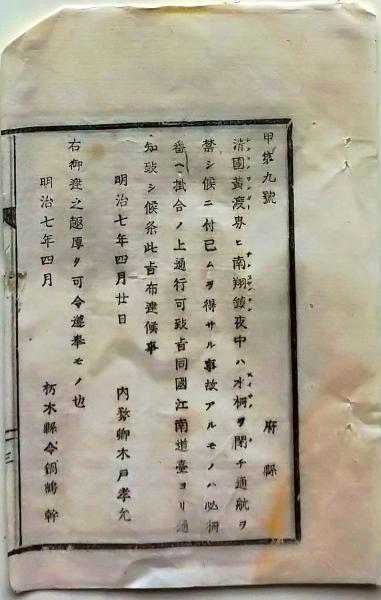 甲第九號
府縣
清國黃渡及ヒ南翔鎮夜中ハ水柵ヲ閉チ通航ヲ
禁シ候ニ付已ムヲ得サル事故アルモノハ必柵
番ヘ掛合ノ上通行可致旨同國江南道臺ヨリ通
知致シ候条此旨布達候事
明治七年四月廿日
内務卿木戸孝允
右御達之趣厚ク可令遵奉モノ也
明治七年四月
栃木縣令鍋島幹